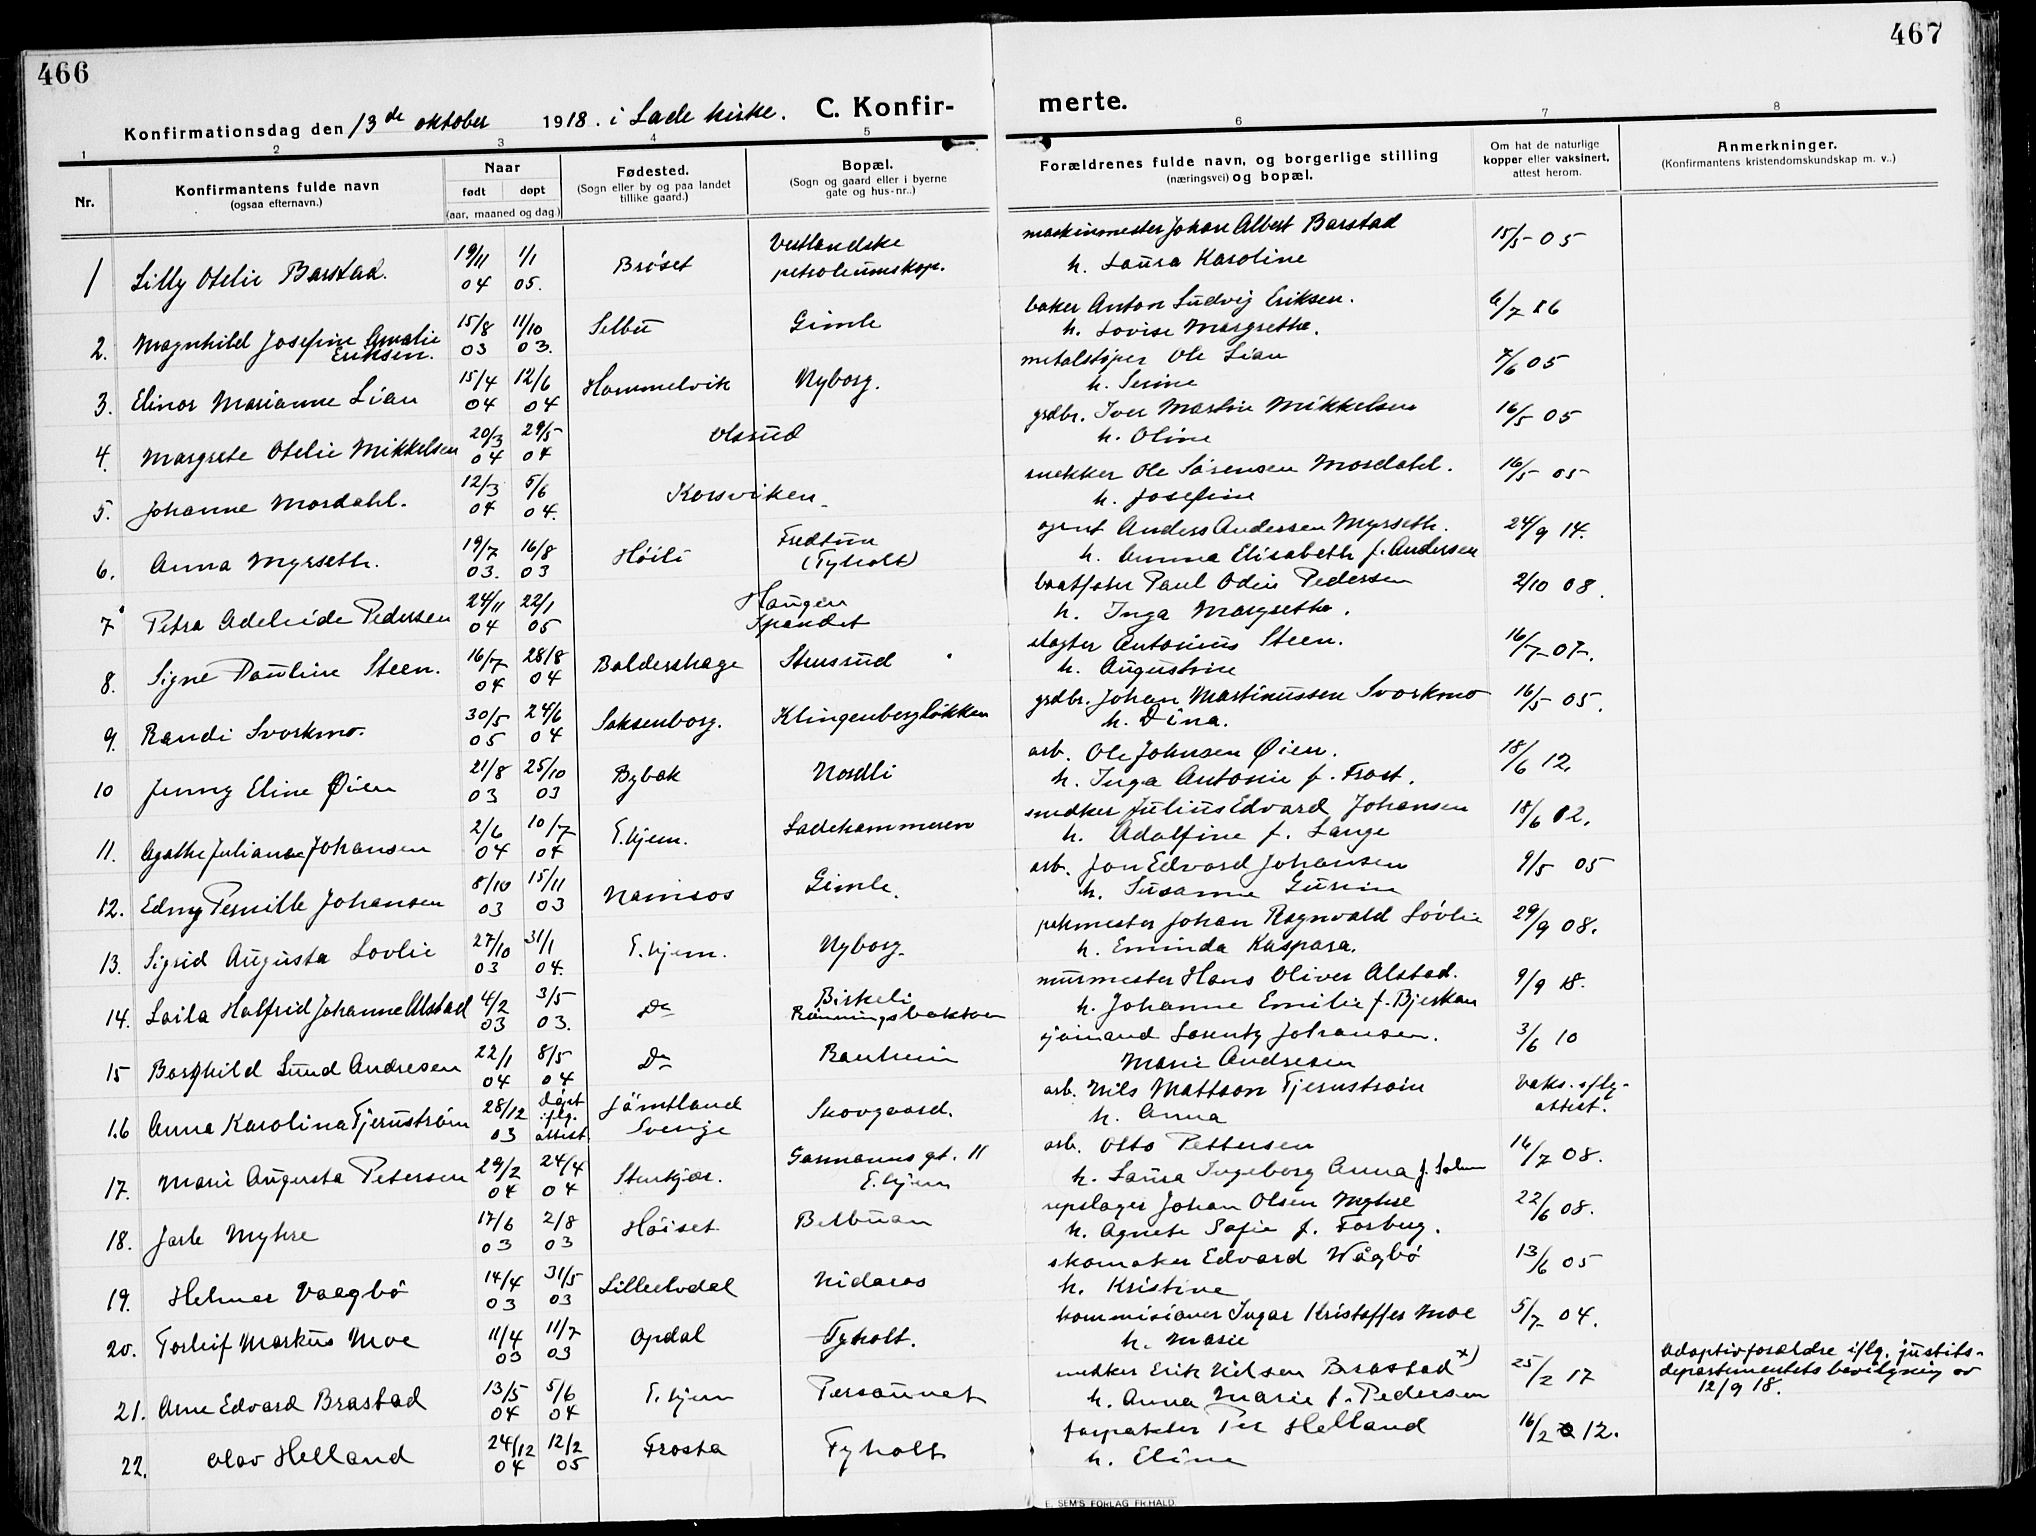 466
467
Konfirmationsdag den 13de oktober 1918. i Lade kirke. C. Konfir-
merte.
1 2 3 4 5 6 7 8
Nr.
Konfirmantens fulde navn
(ogsaa efternavn.)
Naar
født døpt
(aar, maaned og dag.)
Fødested.
(Sogn eller by og paa landet
tillike gaard.)
Bopæl.
(Sogn og gaard eller i byerne
gate og hus-nr.)
Forældrenes fulde navn, og borgerlige stilling
(næringsvei) og bopæl.
Om hat de naturlige
kopper eller vaksinert,
attest herom.
Anmerkninger.
(Konfirmantens kristendomskundskap m. v..)
1 Lilly Otelie Barstad. 19/11 04 1/1 05. Brøset Vestlandske petroleumskop. maskinmester Johan Albert Barstad 15/5-05
h. Laura Karoline
2. Magnhild Josefine Amalie Eriksen. 15/8 03 11/10 03. Selbu Gimle baker Anton Ludvig Eriksen. 6/7 16
h. Lovise Margrethe.
3. Elinor Marianne Lian 15/4 04 12/6 04 Hommelvik Nyborg. metalstøper Ole Lian 7/6 05
h. Serine
4. Margrete Otelie Mikkelsen 20/3 04 29/5 04 Olsrud grdbr. Iver Martin Mikkelsen 16/5 05
h. Oline
5. Johanne Mosdahl. 12/3 04 5/6 04. Korsviken snekker Ole Sørensen Mosdahl. 16/5 05
h. Josefine
6. Anna Myrseth. 19/7 03. 16/8 03 Høili Fredtun (Tyholt) agent Anders Andersen Myrseth. 24/9 14.
h. Anna Elisabeth f. Andersen
7 Petra Adeleide Pedersen 24/11 04 22/1 05 Haugen Spandet baatfører Paul Odin Pedersen 2/10 08.
h. Inga Margrethe.
8. Signe Pauline Steen. 16/7 04 28/8 04 Baldershage Stensrud slagter Antonius Steen. 16/7-07.
h. Augustine
9. Randi Svorkmo. 30/5 05 24/6 04 Saksenborg. Klingenbergløkken grdbr. Johan Martinussen Svorkmo 16/5 05.
h. Dina.
10 Jenny Eline Øien 21/8 03 25/10 03 Bybæk Nordli arb. Ole Johnsen Øien. 18/6 12.
h. Inga Antonie f. Frost.
11. Agathe Juliane Johansen 2/6 04 10/7 04 T.hjem. Ladehammeren snedker Julius Edvard Johansen 18/6 12.
h. Adolfine f. Lange
12. Edny Pernille Johansen 8/10 03 15/11 03 Namsos Gimle. arb. Jon Edvard Johansen 9/5 05
h. Susanne Gurine
13. Sigrid Augusta Løvlie 27/10 03 31/1 04. T.hjem. Nyborg. pakmester Johan Ragnvald Løvlie 29/9 08.
h. Eminda Kaspara.
14. Laila Halfrid Johanne Alstad 4/2 03 3/5 03. Do Birkeli Rønningsbakken murmester Hans Oliver Alstad. 9/9 18.
h. Johanne Emilie f. Bjerkan
15 Borghild Lund Andresen 22/1 04 8/5 04 Do Ranheim sjømand Lorentz Johansen. 3/6 10
Marie Andresen
16 Anna Karolina Tjernstrøm 28/12 03 døpt iflg. attest Jämtland Sverige Skovgaard. arb. Nils Mattson Tjernstrøm vaks. iflg. attest.
h. Anna
17. Marie Augusta Petersen 29/2 04 24/4 04 Stenkjær. Garmanns gt. 11 T.hjem arb. Otto Pettersen 16/7 08.
h. Laura Ingeborg Anna
18. Jarle Myhre 17/6 03 2/8 03 Høiset Belbuan repslager Johan Olsen Myhre 22/6 08.
h. Agnete Sofie f. Forberg.
19. Helmer Vaagbø 14/4 03 31/5 03 Lilleelvdal Nidaros skomaker Edvard Wågbø 13/6 05
h. Kristine
20. Torleif Markus Moe 11/4 03 11/7 03 Opdal Tyholt. kommisionær Ingar Kristoffer Moe 5/7 04.
h. Marie
21. Arne Edvard Brastad 13/5 04 5/6 04 T.hjem Persaunet snedker Erik Nilsen Brastad x) 25/2 17 Adoptivforældre iflg. justits-
h. Anna Marie f. Pedersen departementets bevilgning av
12/9 18.
22. Olav Helland 24/12 04 12/2 05 Frosta Tyholt forpakter Per Helland 16/2 12.
h. Eline
E. SEM'S FORLAG FR.HALD